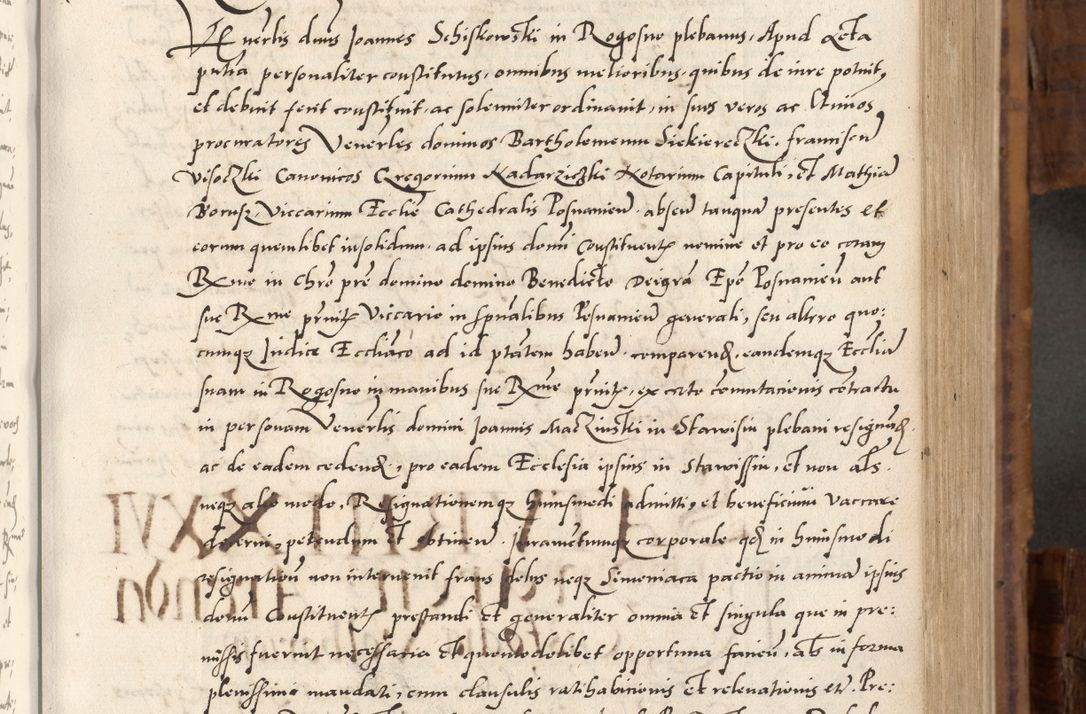 Venerlis dnus Joannes Schiskowski in Rogosno plebanus, Apud Acta
pntia personaliter constitutus, omnibus melioribus, quibus de iure potuit,
et debuit fecit constituit, ac solemniter ordinavit, in suos veros ac ltimos
procuratores Venerles dominos Bartholomeum Siekiereczki, franciscu
visoczki Canonicos Gregorium Kadarziczki Notarium Capituli, et Mathia
Borusz, Viccarium Ecclie Cathedralis Posnanien, absen tanqua presentes et
eorum quemlibet insolidum, ad ipsius domi constituents nomine et pro eo coram
Rmo in Chro pre domino domino Benedicto Dei gra Epo Posnanien aut
sue Rme Viccario in spualibus Posnanien generali, seu altero quo:
cunqz Judice Ecclico ad id ptatem haben, comparend, eandemqz Ecclia
suam in Rogosno in manibus sue Rme ex certo comutacionis cotractu
in personam Venerlis domini Joannis in Stawisin plebani resignand,
ac de eadem cedend, pro eadem Ecclesia ipsius in Stawissin, et non als
neqz alio modo, Resignationemqz huiusmodi admitti, et beneficium vaccare
decerni, petendum et obtinen, Juramentumqz corporale qd in huiusmodi
resignation non intervenit fraus dolus neqz Simoniaca pactio in anima ipsius
domi Constituents prestandi et generaliter omnia et singula que in pre:
missis fuerint necessaria et quomodolibet opportuna facien, als in forma
plenissima mandati, cum clausulis ratihabitionis et relevationis etc. Pre: